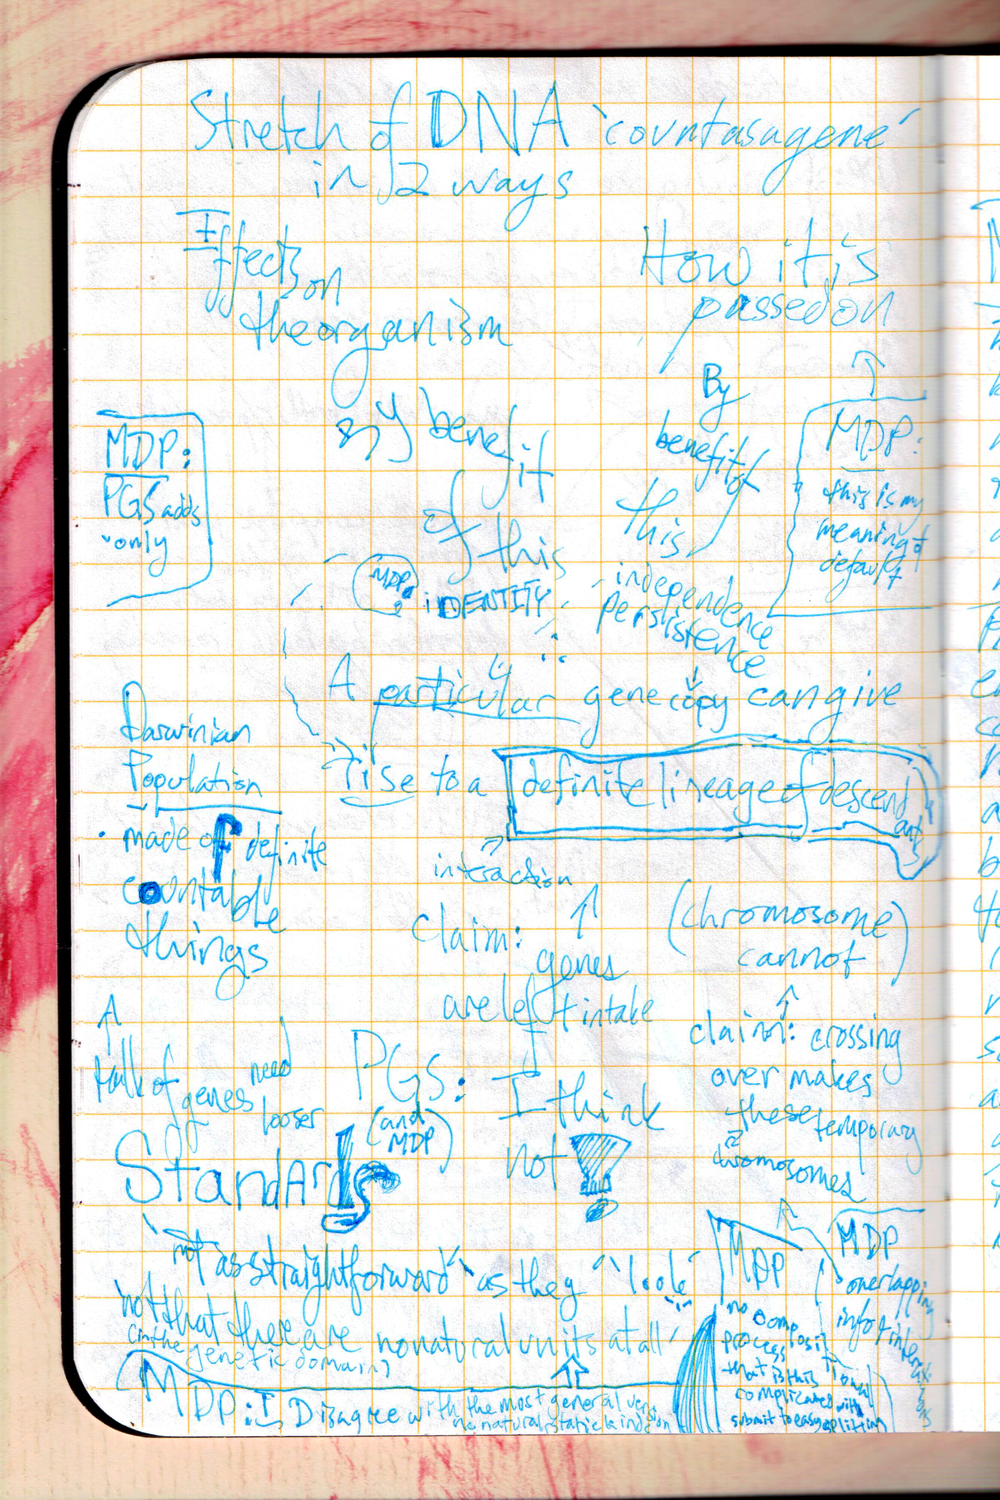 Stretch of DNA 'countasagene'
in 2 ways
Effects on
the organism
How it is
passed on
MDP:
PGS adds
"only
by benefit
of this
By
benefit of
this
MDP:
this is my
meaning of
default
MDP:
iDENTITY
independence
persistence
A particular gene copy can give
rise to a definite lineage of descendants
Darwinian
Population
made of definite
countable
things
interaction
claim:
genes
are left intake
(chromosome)
cannot
claim: crossing
over makes
these temporary
chromosomes
talk of genes need
looser
Standards
PGS:
(and
MDP)
I think
not
not as straightforward as they "look"
not that there are no natural units at all'
(in the
genetic domain)
MDP: I Disagree with the most general
no natural, static
MDP
no
process
that is this
complicated will
submit to easy splitting
MDP
overlapping
info